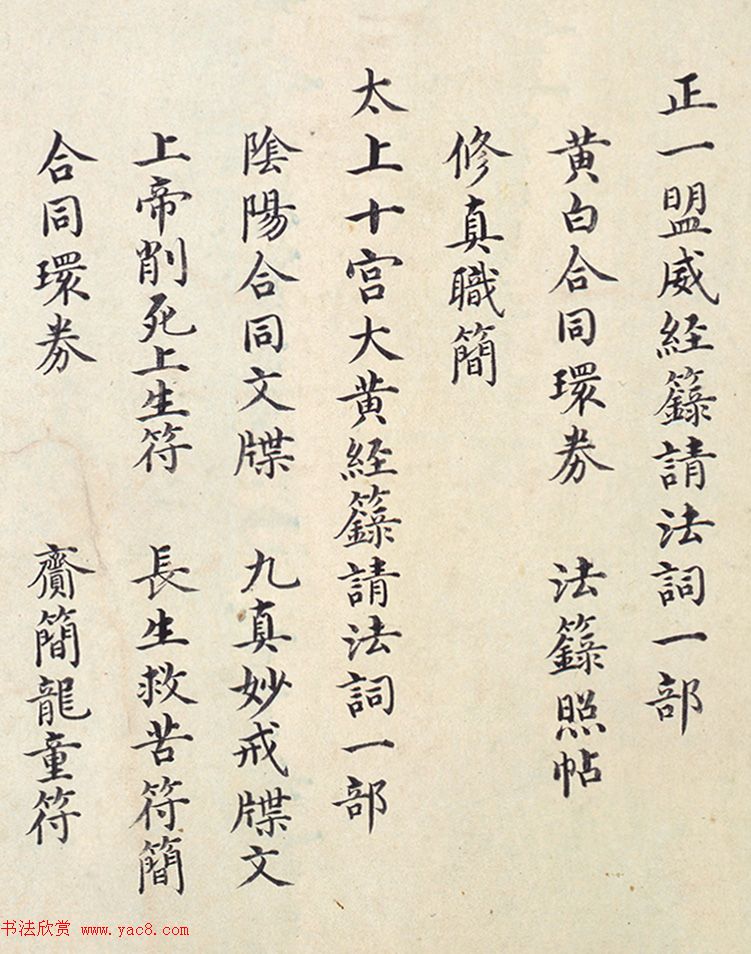 正一盟威経籙請法詞一部
黄白合同環券　法籙照帖
修真職簡
太上十宫大黄経籙請法詞一部
陰陽合同文牒　九真妙戒牒文
上帝削死上生符　長生救苦符簡
合同環券　齎簡龍童符
书法欣赏 www.yac8.com